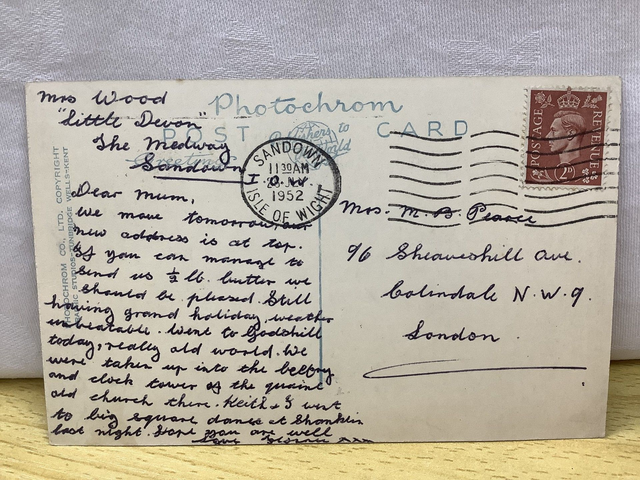 Mrs Wood
"Little Devon"
The Medway
Sandown
Photochrom
POST CARD
SANDOWN
11 30 AM
1952
ISLE OF WIGHT
POSTAGE
REVENUE
2D
PHOTOCHROM CO., LTD. COPYRIGHT
STUDIOS TUNBRIDGE WELLS KENT
Dear Mum,
We move tomorrow, our
new address is at top.
If you can manage to
send us ½ lb. butter we
should be pleased. Still
having grand holiday, weather
unbeatable. Went to Godshill
today, really old world. We
were taken up into the belfry
and clock tower of the quaint
old church there. Keith & I went
to big square dance at Shanklin
last night. Hope you are well
Love
Mrs. M. B. Pearce
96 Sheaveshill Ave.
Colindale N.W.9.
London